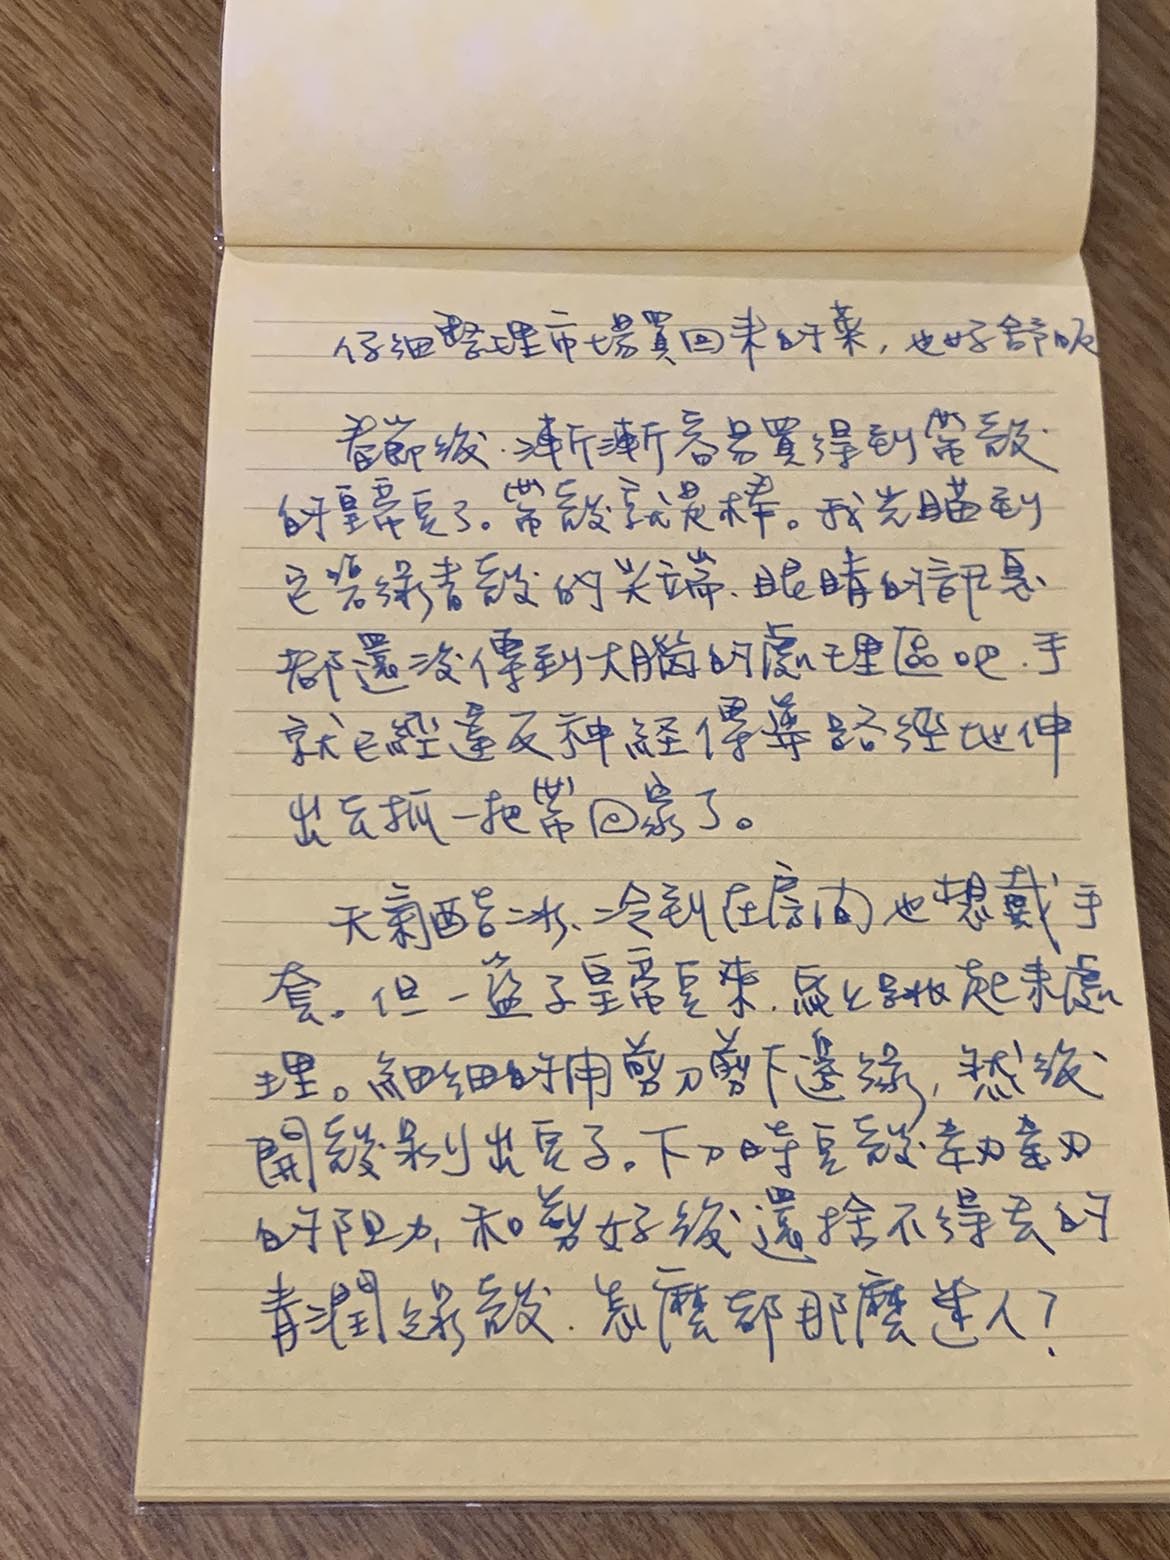 仔細整理市場買回來的菜，也好舒服
春節後、漸漸容易買得到帶殼
的皇帝豆了。帶殼就是棒。我光瞄到
它碧綠青殼的尖端、眼睛的訊息
都還沒傳到大腦的處理區吧、手
就已經違反神經傳導路徑地伸
出去抓一把帶回家了。
天氣酷冰、冷到在房間也想戴手
套。但一盆子皇帝豆來、馬上號收起來處
理。細細的用剪刀剪下邊緣，然後
開殼剝出豆子。下刀時豆殼韌韌
的阻力，和剪好後還捨不得丟的
青潤綠殼、怎麼都那麼迷人？